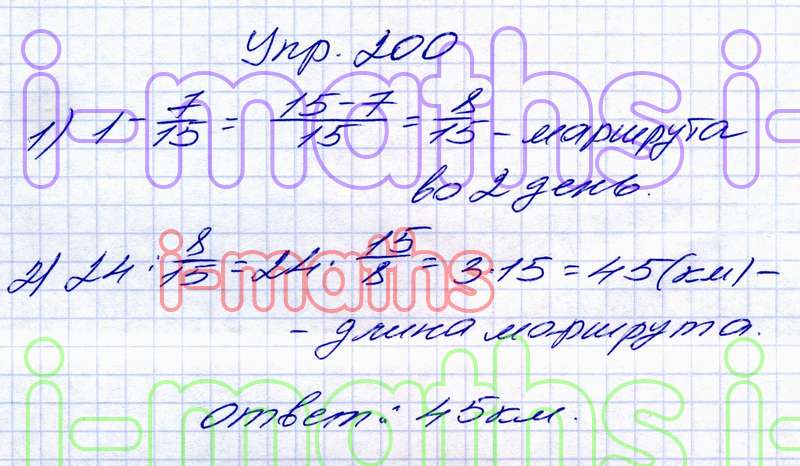 Упр. 200
1) 1 - 7/15 = (15-7)/15 = 8/15 - маршрута
во 2 день.
2) 24 : 8/15 = 24 · 15/8 = 3·15 = 45 (км) -
- длина маршрута.
ответ: 45 км.
i-maths i-maths i
i-maths
i-maths i